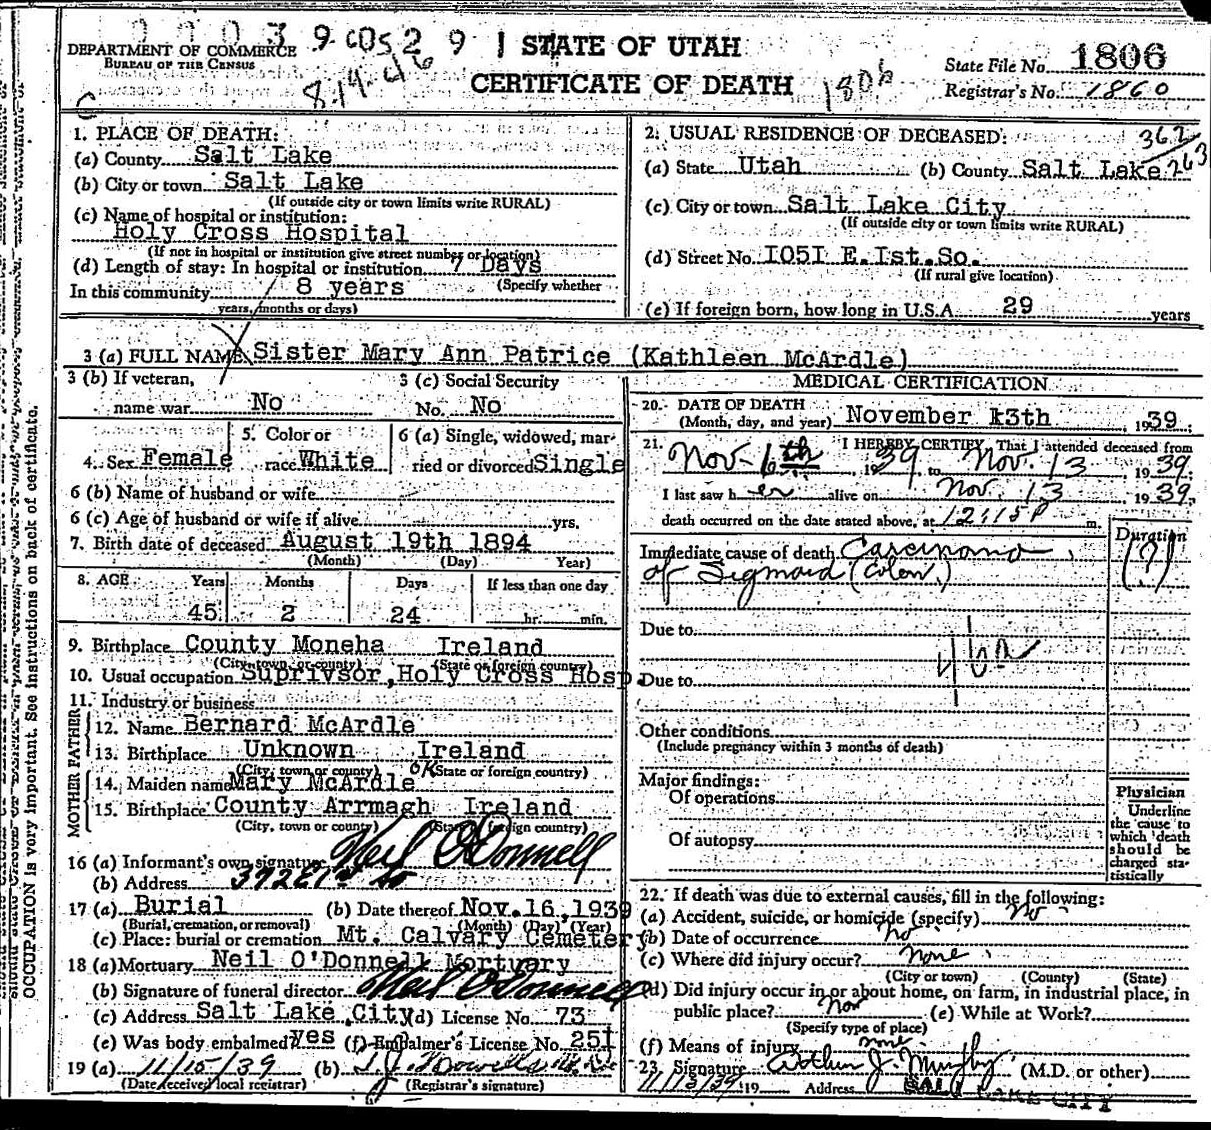 DEPARTMENT OF COMMERCE
BUREAU OF THE CENSUS
STATE OF UTAH
CERTIFICATE OF DEATH
8.14.46
1806
State File No. 1806
Registrar's No. 1860
1. PLACE OF DEATH:
(a) County Salt Lake
(b) City or town Salt Lake
(If outside city or town limits write RURAL)
(c) Name of hospital or institution:
Holy Cross Hospital
(If not in hospital or institution give street number or location)
(d) Length of stay: In hospital or institution 7 Days
(Specify whether
In this community 8 years
years, months or days)
2. USUAL RESIDENCE OF DECEASED:
362
263
(a) State Utah (b) County Salt Lake
(c) City or town Salt Lake City
(If outside city or town limits write RURAL)
(d) Street No. I05I E.Ist.So.
(If rural give location)
(e) If foreign born, how long in U.S.A. 29 years
3 (a) FULL NAME Sister Mary Ann Patrice (Kathleen McArdle)
3 (b) If veteran, name war No
3 (c) Social Security No. No
4. Sex Female
5. Color or race White
6 (a) Single, widowed, married or divorced Single
6 (b) Name of husband or wife
6 (c) Age of husband or wife if alive yrs.
7. Birth date of deceased August 19th 1894
(Month) (Day) Year)
8. AGE Years Months Days If less than one day
45 2 24 hr. min.
9. Birthplace County Moneha Ireland
(City, town, or county) (State or foreign country)
10. Usual occupation Suprivsor, Holy Cross Hosp.
11. Industry or business
FATHER
12. Name Bernard McArdle
13. Birthplace Unknown Ireland
(City, town or county) (State or foreign country)
MOTHER
14. Maiden name Mary McArdle OK
15. Birthplace County Arrmagh Ireland
(City, town or county) (State or foreign country)
16 (a) Informant's own signature Neil O'Donnell
(b) Address 372 E 1st So
17 (a) Burial (b) Date thereof Nov.16,1939
(Burial, cremation, or removal) (Month) (Day) (Year)
(c) Place: burial or cremation Mt. Calvary Cemetery
18 (a) Mortuary Neil O'Donnell Mortuary
(b) Signature of funeral director Neil O'Donnell
(c) Address Salt Lake City (d) License No. 73
(e) Was body embalmed? yes (f) Embalmer's License No. 251
19 (a) 11/15/39 (b)
(Date received local registrar) (Registrar's signature)
MEDICAL CERTIFICATION
20. DATE OF DEATH
(Month, day, and year) November 13th, 1939.
21. I HEREBY CERTIFY, That I attended deceased from
Nov-6th, 1939 to Nov. 13, 1939.
I last saw her alive on Nov. 13 1939.
death occurred on the date stated above, at 12:15 P m.
Duration
Immediate cause of death Carcinoma
of Sigmoid (Colon) (?)
Due to
Due to
Other conditions
(Include pregnancy within 3 months of death)
Major findings:
Of operations
Of autopsy
Physician
Underline the cause to which death should be charged statistically
22. If death was due to external causes, fill in the following:
(a) Accident, suicide, or homicide (specify) No
(b) Date of occurrence no
(c) Where did injury occur? none
(City or town) (County) (State)
(d) Did injury occur in or about home, on farm, in industrial place, in
public place? (e) While at Work?
(Specify type of place)
(f) Means of injury none
23. Signature Arthur J. Murphy (M.D. or other)
11/13/39 19 Address SALT LAKE CITY
OCCUPATION is very important. See instructions on back of certificate.